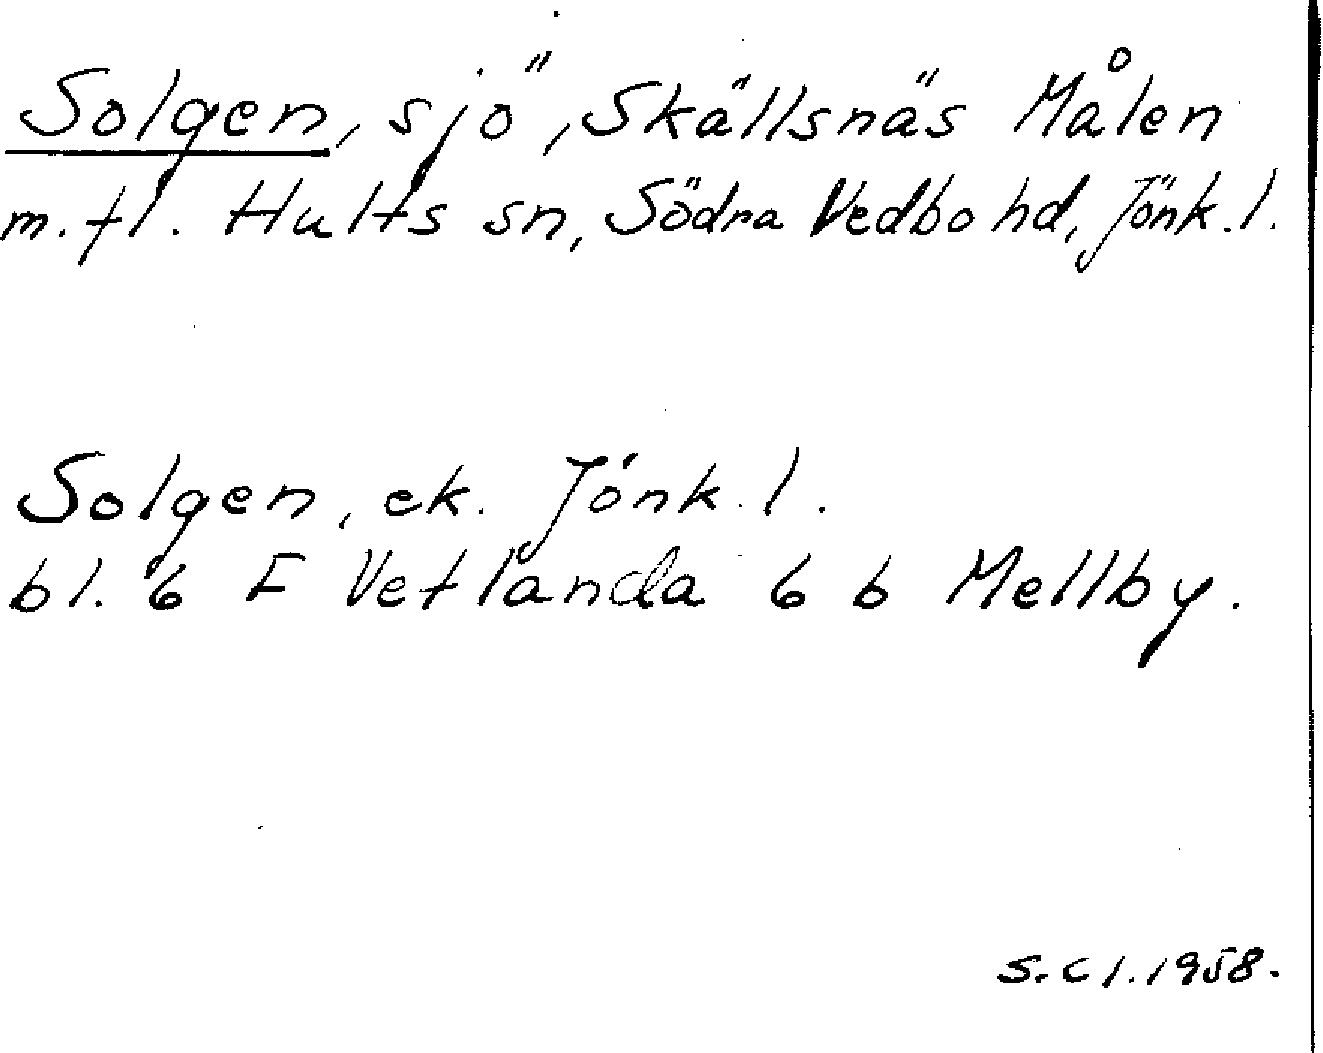 Solgen, sjö, Skällsnäs Målen
m. fl. Hults sn, Södra Vedbo hd, Jönk. l.
Solgen, ek. Jönk. l.
bl. 6 F Vetlanda 6 b Mellby.
S. Cl. 1958.